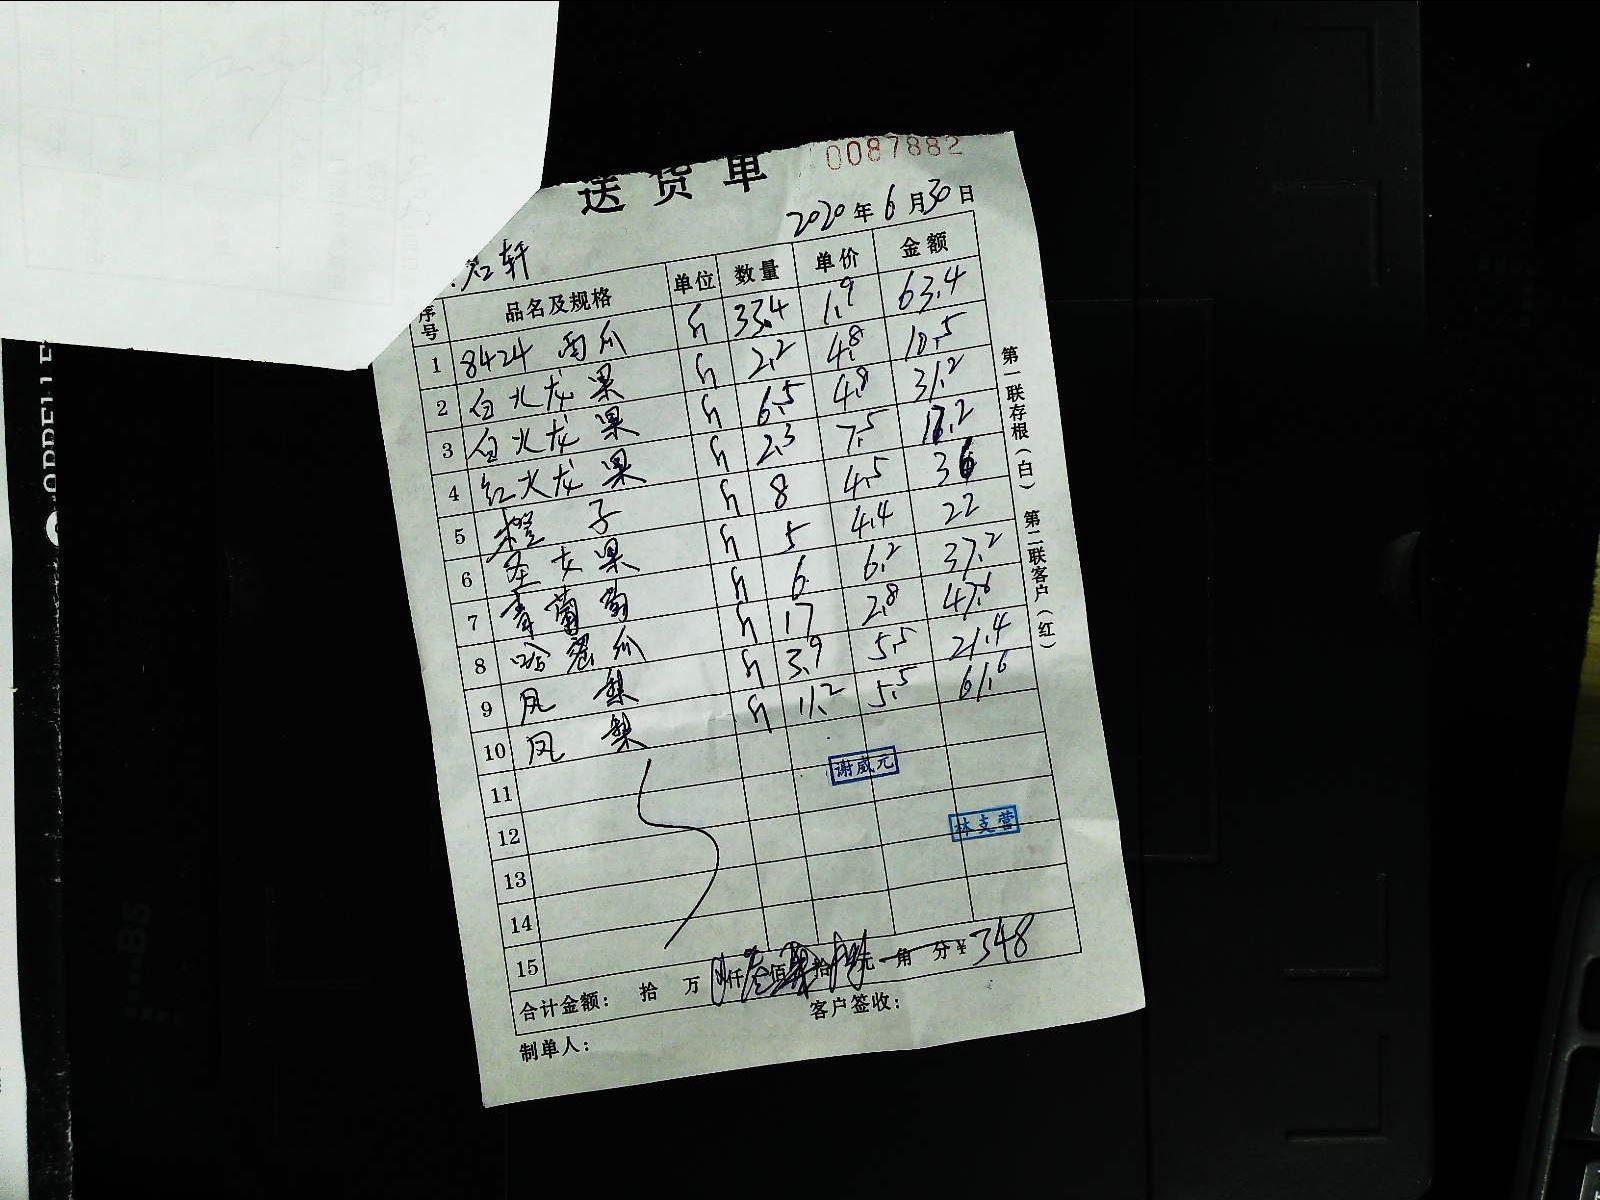 送货单 0087882
2020年6月30日
轩
序号 品名及规格 单位 数量 单价 金额
1 8424 西瓜 斤 33.4 1.9 63.4
2 白火龙果 斤 2.2 4.8 10.5
3 白火龙果 斤 6.5 4.8 31.2
4 红火龙果 斤 2.3 7.5 17.2
5 橙子 斤 8 4.5 36
6 圣女果 斤 5 4.4 22
7 青葡萄 斤 6 6.2 37.2
8 哈蜜瓜 斤 17 2.8 47.6
9 凤梨 斤 3.9 5.5 21.4
10 凤梨 斤 11.2 5.5 61.6
11
谢威元
12
林支营
13
14
15
合计金额： 拾 万 仟 叁佰 拾 元 角 分¥348
制单人： 客户签收：
第一联存根（白） 第二联客户（红）